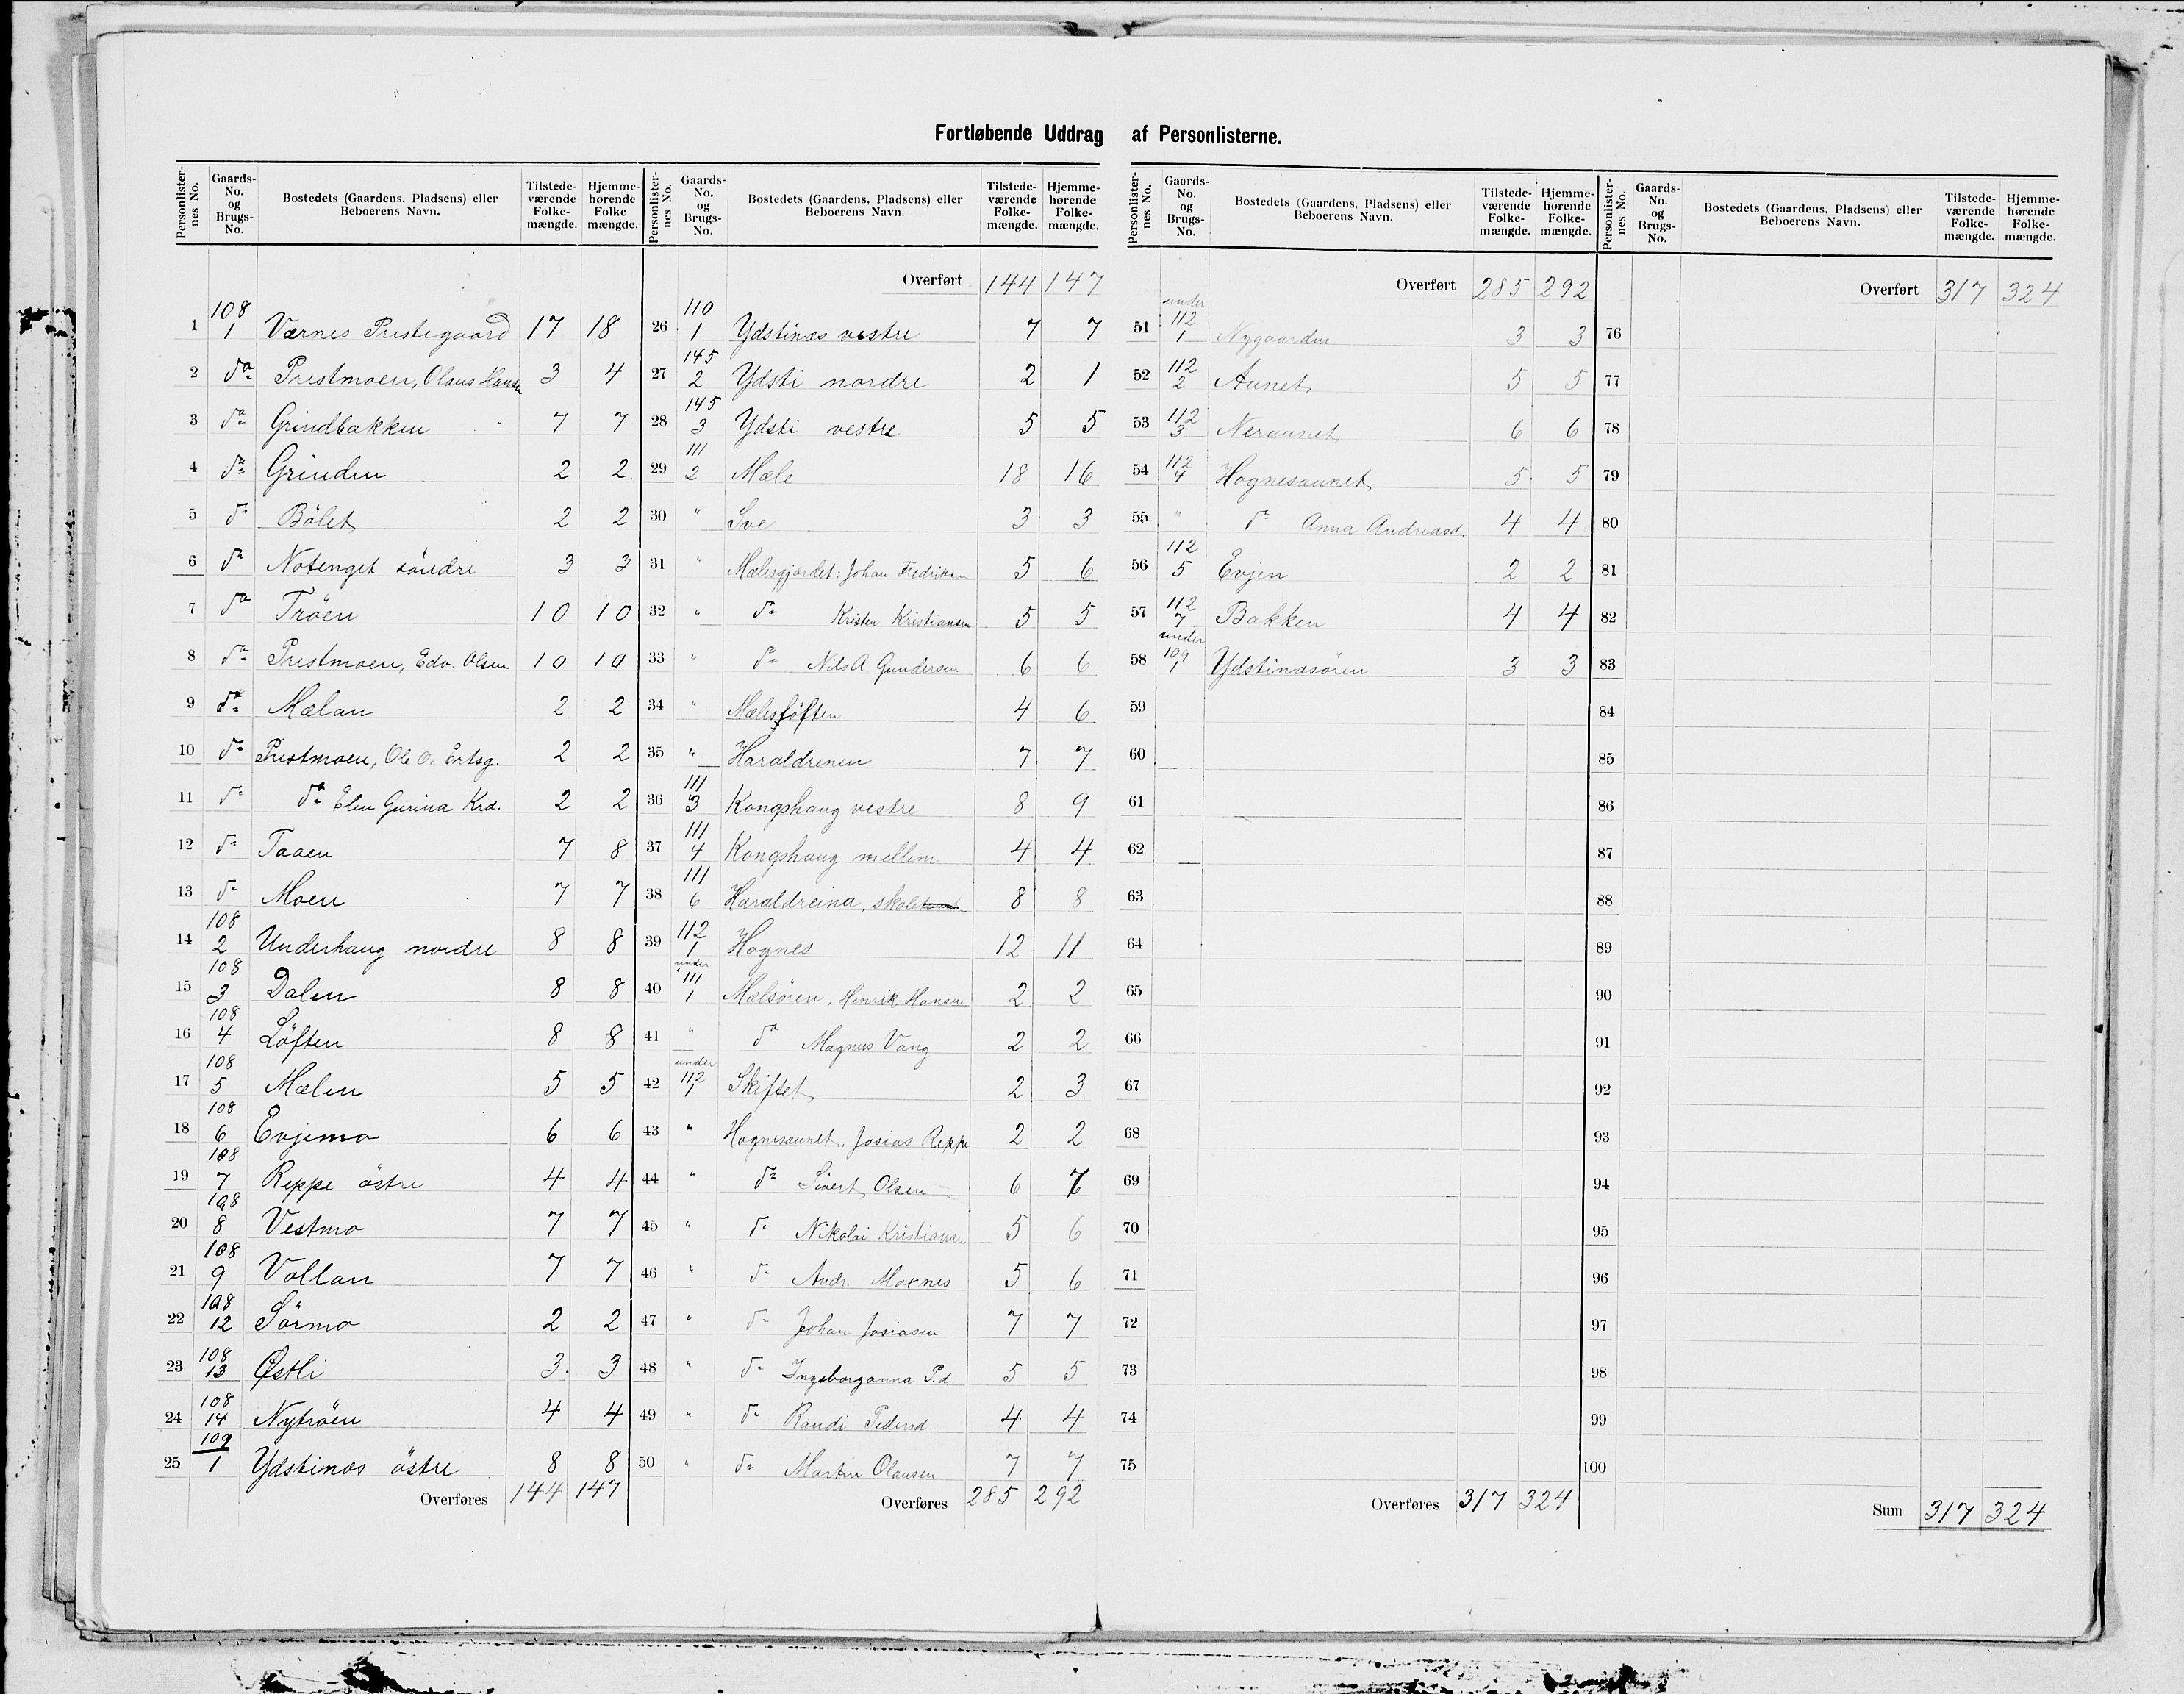 Fortløbende Uddrag af Personlisterne.
Personlisternes No. Gaards-No. og Brugs-No. Bostedets (Gaardens, Pladsens) eller Beboerens Navn. Tilstedeværende Folkemængde. Hjemmehørende Folkemængde.
1 108/1 Værnes Prestegaard 17 18
2 do Prestmoen, Olaus Hansen 3 4
3 do Grindbakken 7 7
4 do Grinden 2 2
5 do Bölet 2 2
6 do Notenget söndre 3 3
7 do Tröen 10 10
8 do Prestmoen, Edv. Olsen 10 10
9 do Mælan 2 2
10 do Prestmoen, Ole O. Ertsg. 2 2
11 do do Elen Gurina Krd. 2 2
12 do Taaen 7 8
13 do Moen 7 7
14 108/2 Underhaug nordre 8 8
15 108/3 Dalen 8 8
16 108/4 Löften 8 8
17 108/5 Mælen 5 5
18 108/6 Evjemo 6 6
19 108/7 Reppe östre 4 4
20 108/8 Vestmo 7 7
21 108/9 Vollan 7 7
22 108/12 Sörmo 2 2
23 108/13 Østli 3 3
24 108/14 Nytröen 4 4
25 109/1 Ydstinæs östre 8 8
Overføres 144 147
Personlisternes No. Gaards-No. og Brugs-No. Bostedets (Gaardens, Pladsens) eller Beboerens Navn. Tilstedeværende Folkemængde. Hjemmehørende Folkemængde.
Overført 144 147
26 110/1 Ydstinæs vestre 7 7
27 145/2 Ydsti nordre 2 1
28 145/3 Ydsti vestre 5 5
29 111/2 Mæle 18 16
30 " Sve 3 3
31 " Mælesgjærdet: Johan Fredriksen 5 6
32 " do Kristen Kristiansen 5 5
33 " do Nils A Gundersen 6 6
34 " Mælesløften 4 6
35 " Haraldrenen 7 7
36 111/3 Kongshaug vestre 8 9
37 111/4 Kongshaug mellem 4 4
38 111/6 Haraldreina, skole 8 8
39 112/1 Hognes 12 11
40 under 111/1 Mælsören, Henrik Hansen 2 2
41 " do Magnus Vang 2 2
42 under 112/1 Skiftet 2 3
43 " Hognesaunet, Josias Reppe 2 2
44 " do Sivert Olsen 6 7
45 " do Nikolai Kristiansen 5 6
46 " do Andr. Moxnes 5 6
47 " do Johan Josiasen 7 7
48 " do Ingeborganna P.d. 5 5
49 " do Randi Pedersd. 4 4
50 " do Martin Olausen 7 7
Overføres 285 292
Personlisternes No. Gaards-No. og Brugs-No. Bostedets (Gaardens, Pladsens) eller Beboerens Navn. Tilstedeværende Folkemængde. Hjemmehørende Folkemængde.
Overført 285 292
51 under 112/1 Nygaarden 3 3
52 112/2 Aunet 5 5
53 112/3 Neraunet 6 6
54 112/4 Hognesaunet 5 5
55 " do Anna Andreasd. 4 4
56 112/5 Evjen 2 2
57 112/7 Bakken 4 4
58 under 109/1 Ydstinæsören 3 3
59
60
61
62
63
64
65
66
67
68
69
70
71
72
73
74
75
Overføres 317 324
Personlisternes No. Gaards-No. og Brugs-No. Bostedets (Gaardens, Pladsens) eller Beboerens Navn. Tilstedeværende Folkemængde. Hjemmehørende Folkemængde.
Overført 317 324
76
77
78
79
80
81
82
83
84
85
86
87
88
89
90
91
92
93
94
95
96
97
98
99
100
Sum 317 324